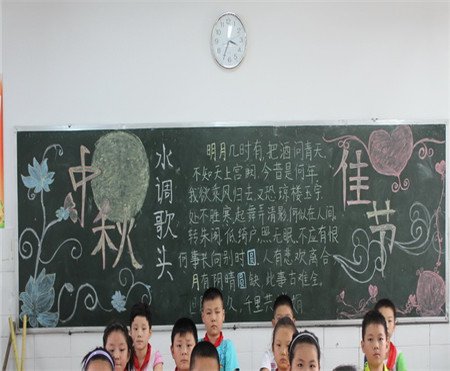 中秋
佳节
水调歌头
明月几时有,把酒问青天,
不知天上宫阙,今昔是何年,
我欲乘风归去又恐琼楼玉宇,
处不胜寒,起舞弄清影,何似在人间,
转朱阁,低绮户,照无眠,不应有恨
何事长向别时圆,人有悲欢离合
月有阴晴圆缺,此事古难全,
久,千里共